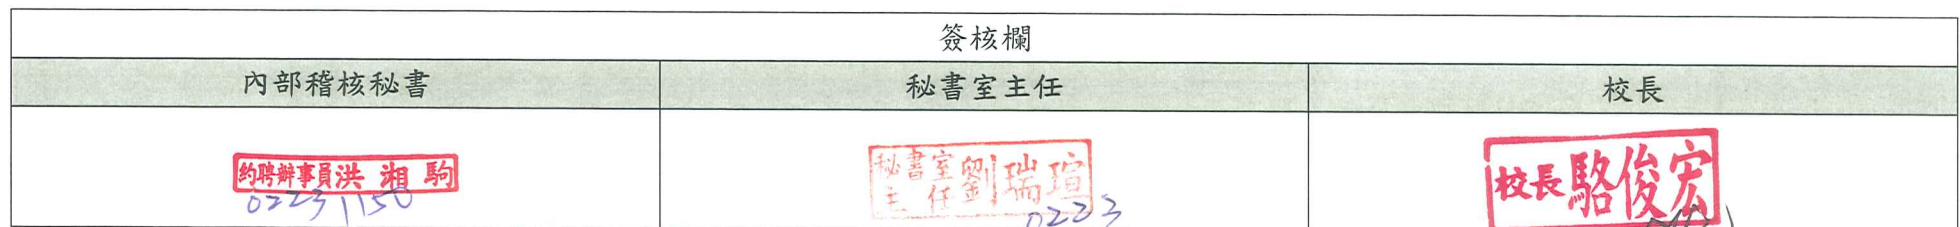 簽核欄
內部稽核秘書 秘書室主任 校長
約聘辦事員洪湘駒
0223 1150
秘書室主任劉瑞瑄
0223
校長駱俊宏